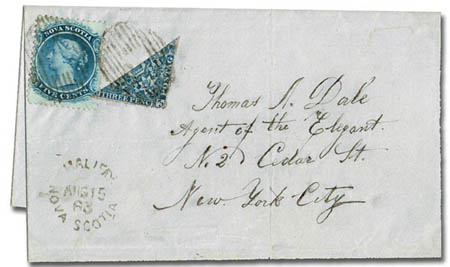 NOVA SCOTIA
FIVE CENTS
THREE PENCE
Thomas A. Dale
Agent of the Elegant.
No. 2 Cedar St.
New York City
HALIFAX
AU 15
63
NOVA SCOTIA